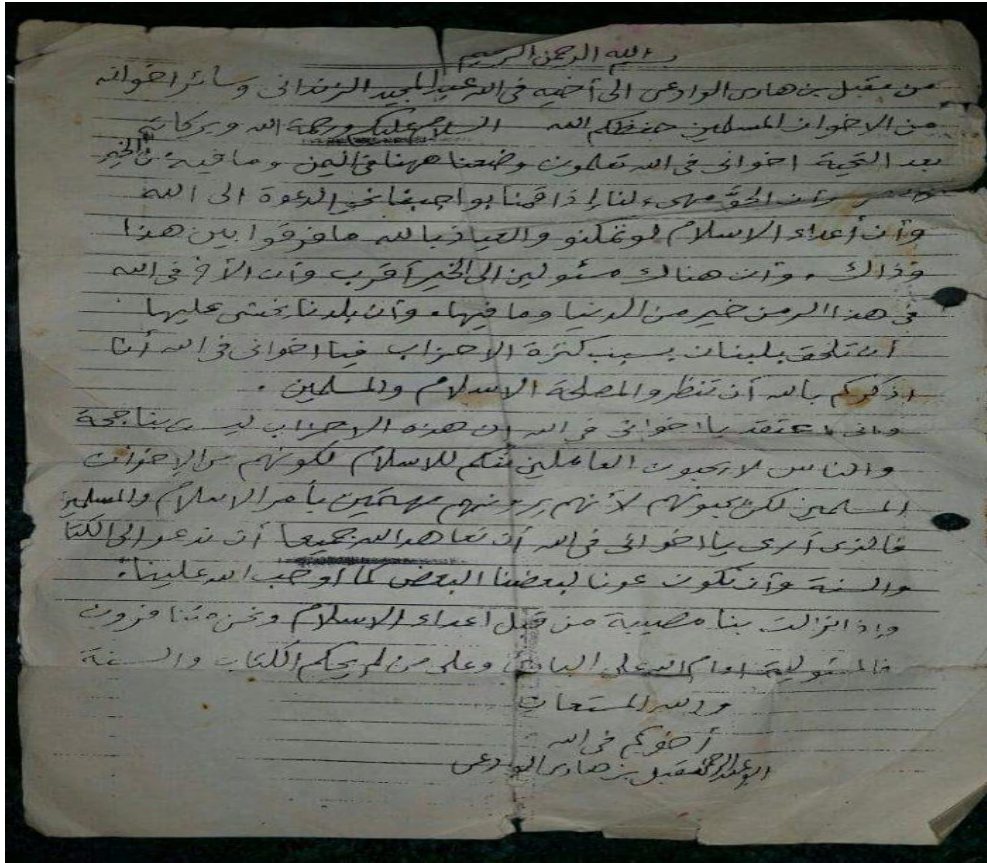 بسم الله الرحمن الرحيم
من مقبل بن هادى الوادعى الى أخيه فى الله عبد المجيد الزندانى وسائر اخوانه
من الاخوان المسلمين حفظكم الله السلام عليكم ورحمة الله وبركاته
بعد التحية اخوانى فى الله تعلمون وضعنا ههنا فى اليمن وما فيه من الخير
وأن الحق مهىء لنا إذا قمنا بواجبنا نحو الدعوة الى الله
وأن أعداء الاسلام لو تمكنو والعياذ بالله ما فرقوا بين هذا
وذاك، وأن هناك مسئولين الى الخير أقرب وأن الأخ فى الله
فى هذا الزمن خير من الدنيا وما فيها، وأن بلدنا يخشى عليها
أن تلحق بلبنان بسبب كثرة الاحزاب فيا اخوانى فى الله أنا
اذكركم بالله أن تنظروا لمصلحة الاسلام والمسلمين .
وانى اعتقد يا اخوانى فى الله ان هذه الاحزاب ليست بناجحة
والناس لا يحبون العاملين منكم للاسلام لكونهم من الاخوان
المسلمين لكن يحبونهم لأنهم يرونهم مهتمين بأمر الاسلام والمسلمين
فالذى أرى يا اخوانى فى الله أن نعاهد الله جميعا أن ندعو الى الكتاب
والسنة وأن نكون عونا لبعضنا البعض كما أوجب الله علينا،
وإذا نزلت بنا مصيبة من قبل اعداء الاسلام ونحن متنافرون
فالمسئولية امام الله على البادئ وعلى من لم يحكم الكتاب والسنة
والله المستعان
أخوكم فى الله
أبو عبد الرحمن مقبل بن هادى الوادعى